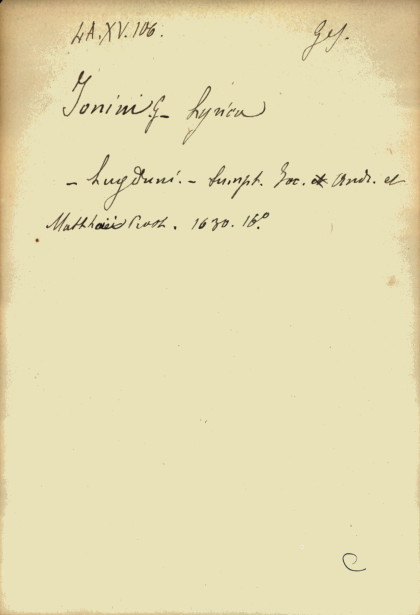 4A.XV.106. Ges.
Jonini G- Lyrica
- Lugduni. - Sumpt. Jac. et Andr. et
Matthaei Prost. 1630. 16º.
C